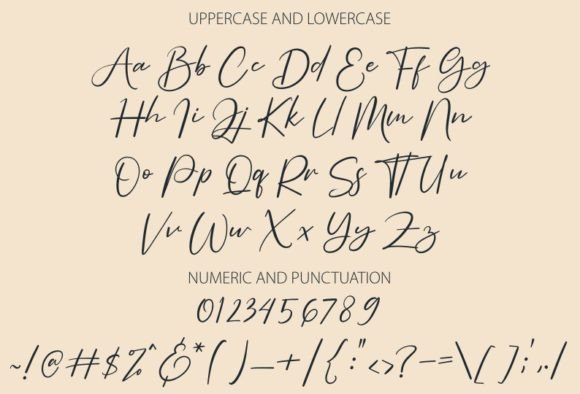 UPPERCASE AND LOWERCASE
Aa Bb Cc Dd Ee Ff Gg
Hh Ii Jj Kk Ll Mm Nn
Oo Pp Qq Rr Ss Tt Uu
Vv Ww Xx Yy Zz
NUMERIC AND PUNCTUATION
0123456789
~!@#$%^&*()_+/{:"<>?-=\[];',./